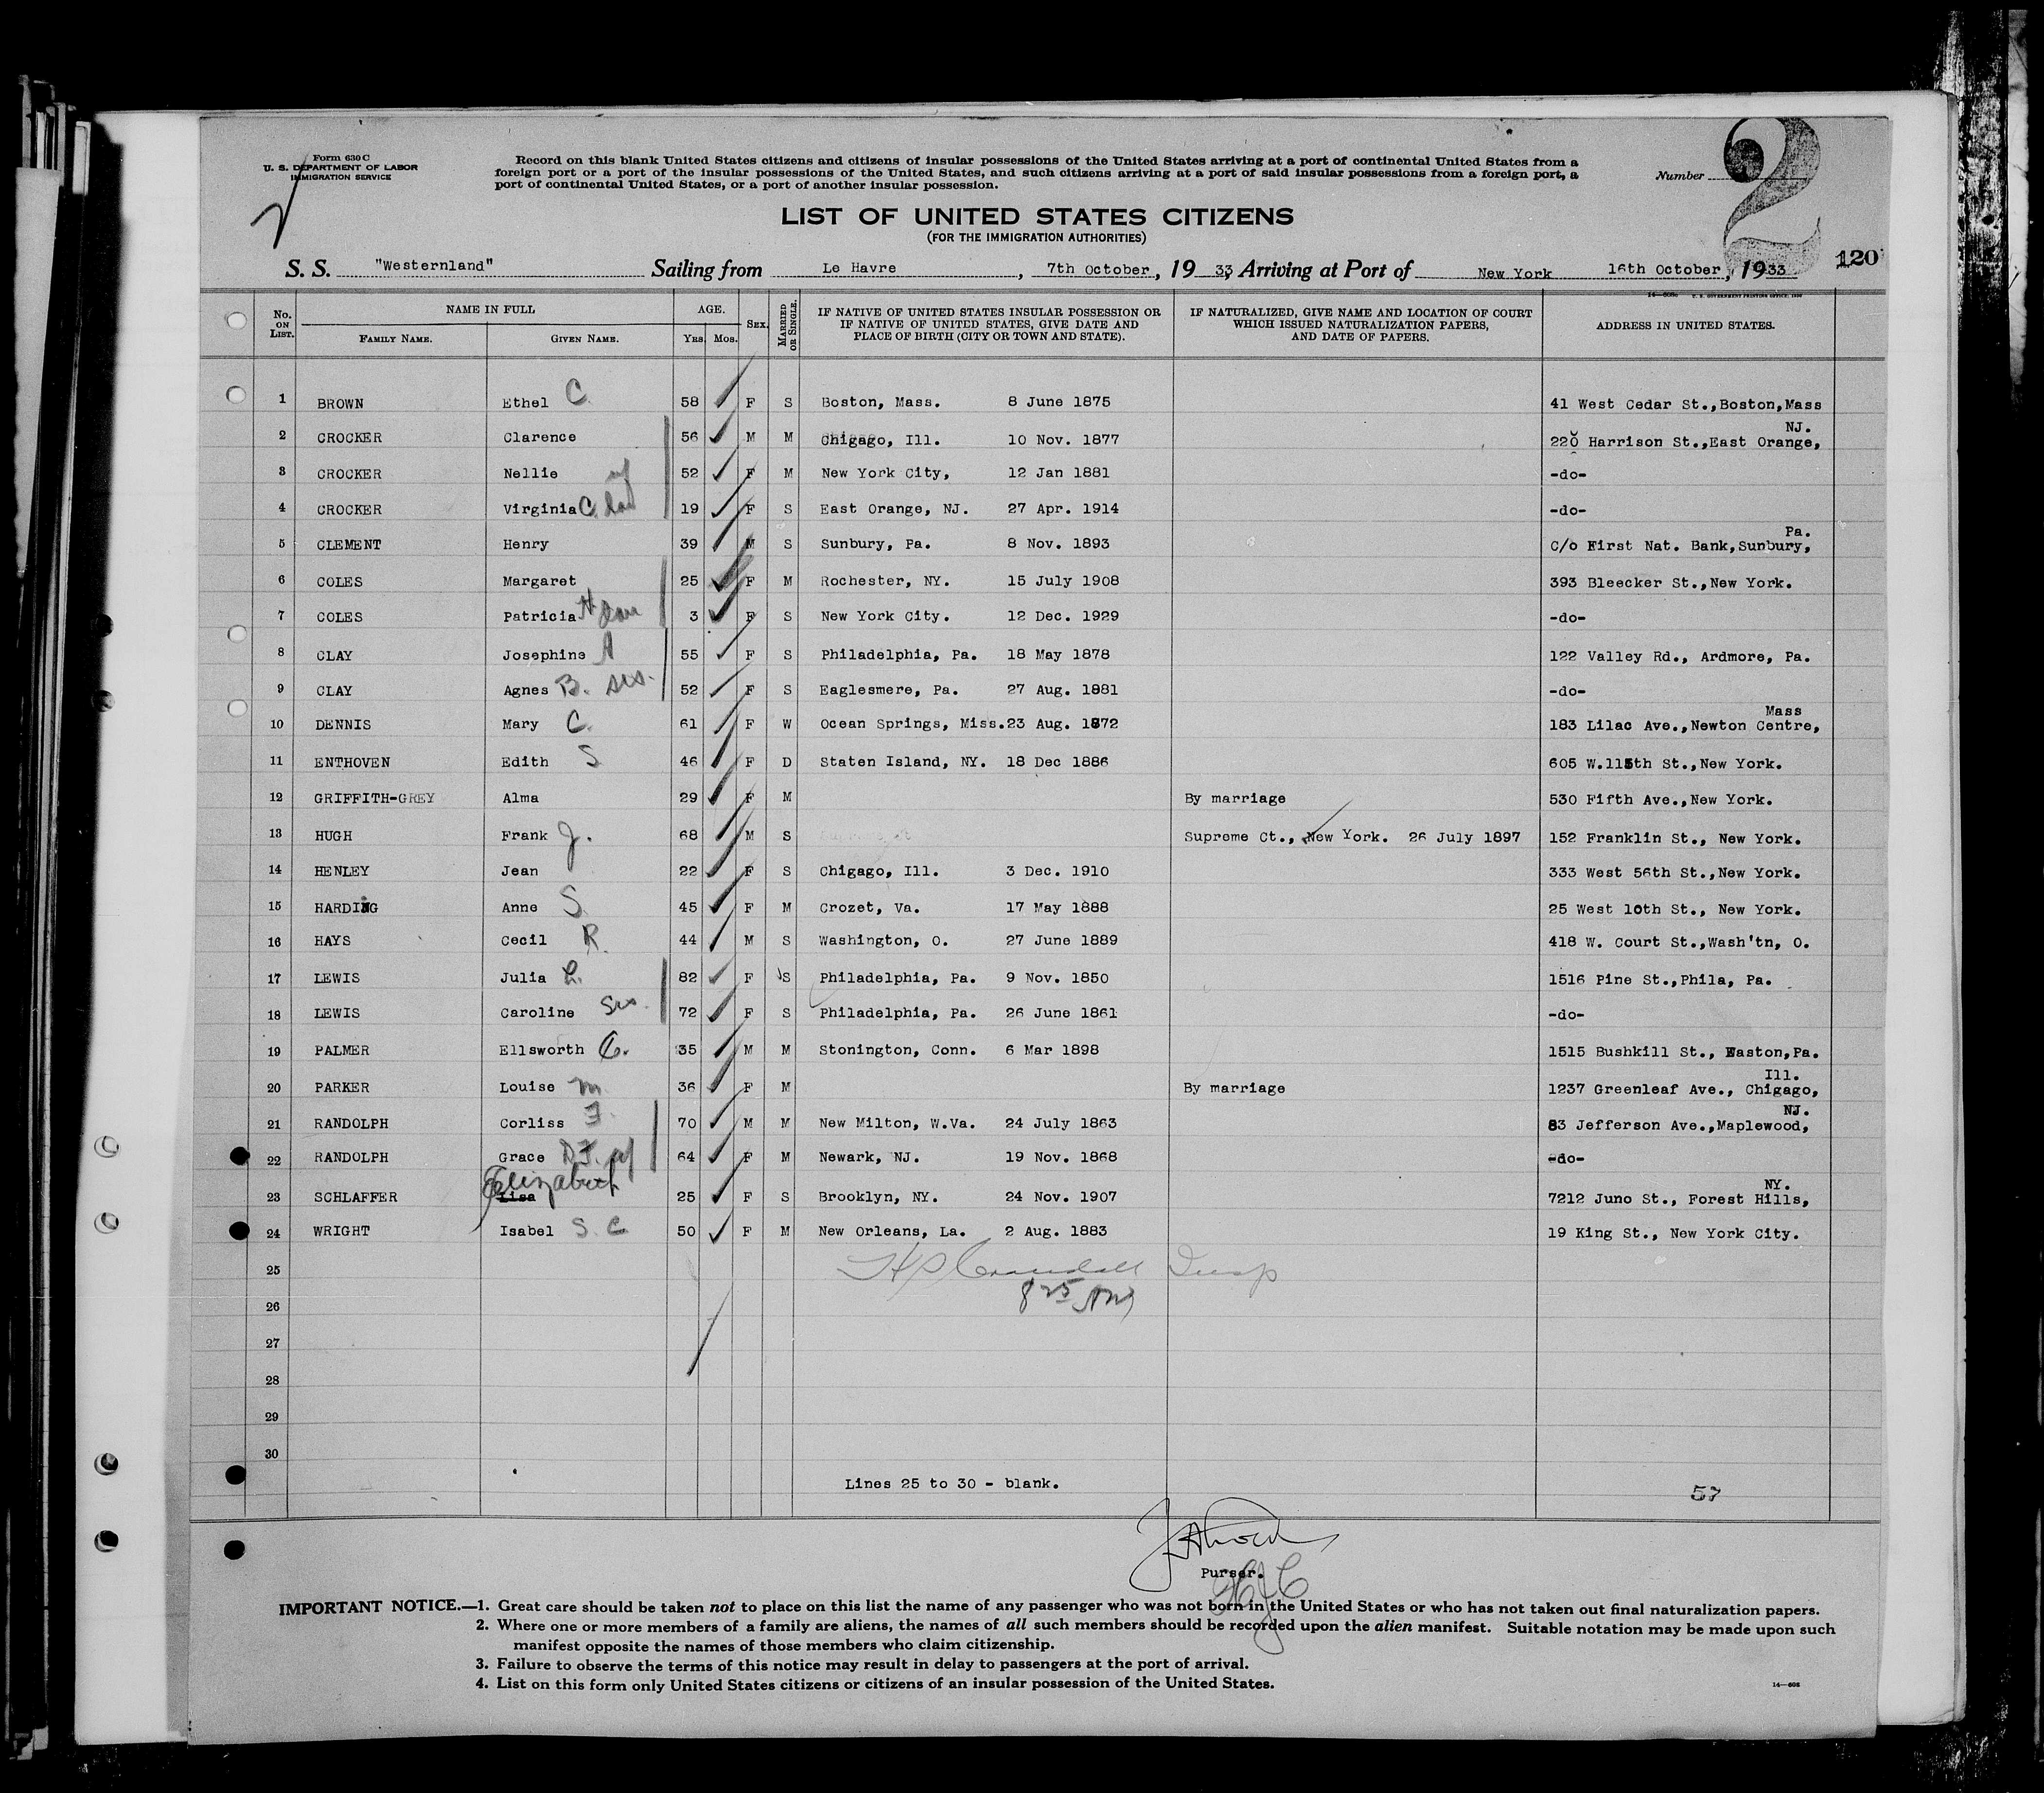 Form 630 C
U. S. DEPARTMENT OF LABOR
IMMIGRATION SERVICE
Record on this blank United States citizens and citizens of insular possessions of the United States arriving at a port of continental United States from a
foreign port or a port of the insular possessions of the United States, and such citizens arriving at a port of said insular possessions from a foreign port, a
port of continental United States, or a port of another insular possession.
Number 2
LIST OF UNITED STATES CITIZENS
(FOR THE IMMIGRATION AUTHORITIES)
S. S. "Westernland" Sailing from Le Havre, 7th October, 19 33, Arriving at Port of New York 16th October, 19 33 120
No. ON LIST. NAME IN FULL FAMILY NAME. GIVEN NAME. AGE. YRS. MOS. SEX. MARRIED OR SINGLE. IF NATIVE OF UNITED STATES INSULAR POSSESSION OR IF NATIVE OF UNITED STATES, GIVE DATE AND PLACE OF BIRTH (CITY OR TOWN AND STATE). IF NATURALIZED, GIVE NAME AND LOCATION OF COURT WHICH ISSUED NATURALIZATION PAPERS, AND DATE OF PAPERS. ADDRESS IN UNITED STATES.
1 BROWN Ethel C 58 F S Boston, Mass. 8 June 1875 41 West Cedar St.,Boston,Mass
2 CROCKER Clarence 56 M M Chigago, Ill. 10 Nov. 1877 220 Harrison St.,East Orange, NJ.
3 CROCKER Nellie wf 52 F M New York City, 12 Jan 1881 -do-
4 CROCKER Virginia C. dau 19 F S East Orange, NJ. 27 Apr. 1914 -do-
5 CLEMENT Henry 39 M S Sunbury, Pa. 8 Nov. 1893 C/o First Nat. Bank,Sunbury, Pa.
6 COLES Margaret 25 F M Rochester, NY. 15 July 1908 393 Bleecker St.,New York.
7 COLES Patricia H dau 3 F S New York City. 12 Dec. 1929 -do-
8 CLAY Josephine A 55 F S Philadelphia, Pa. 18 May 1878 122 Valley Rd., Ardmore, Pa.
9 CLAY Agnes B. sis. 52 F S Eaglesmere, Pa. 27 Aug. 1881 -do-
10 DENNIS Mary C. 61 F W Ocean Springs, Miss.23 Aug. 1872 183 Lilac Ave.,Newton Centre, Mass
11 ENTHOVEN Edith S 46 F D Staten Island, NY. 18 Dec 1886 605 W.115th St.,New York.
12 GRIFFITH-GREY Alma 29 F M By marriage 530 Fifth Ave.,New York.
13 HUGH Frank J. 68 M S Supreme Ct., New York. 26 July 1897 152 Franklin St., New York.
14 HENLEY Jean 22 F S Chigago, Ill. 3 Dec. 1910 333 West 56th St.,New York.
15 HARDING Anne S. 45 F M Crozet, Va. 17 May 1888 25 West 10th St., New York.
16 HAYS Cecil R. 44 M S Washington, O. 27 June 1889 418 W. Court St.,Wash'tn, O.
17 LEWIS Julia L. 82 F S Philadelphia, Pa. 9 Nov. 1850 1516 Pine St.,Phila, Pa.
18 LEWIS Caroline sis. 72 F S Philadelphia, Pa. 26 June 1861 -do-
19 PALMER Ellsworth C. 35 M M Stonington, Conn. 6 Mar 1898 1515 Bushkill St., Easton,Pa.
20 PARKER Louise M 36 F M By marriage 1237 Greenleaf Ave., Chigago, Ill.
21 RANDOLPH Corliss F. 70 M M New Milton, W.Va. 24 July 1863 83 Jefferson Ave.,Maplewood, NJ.
22 RANDOLPH Grace D F. wf 64 F M Newark, NJ. 19 Nov. 1868 -do-
23 SCHLAFFER Lisa Elizabeth 25 F S Brooklyn, NY. 24 Nov. 1907 7212 Juno St., Forest Hills, NY.
24 WRIGHT Isabel S. C 50 F M New Orleans, La. 2 Aug. 1883 19 King St., New York City.
25 H P Crandall Insp
26 8 25 AM
27
28
29
30
Lines 25 to 30 - blank.
57
Purser.
IMPORTANT NOTICE.—1. Great care should be taken not to place on this list the name of any passenger who was not born in the United States or who has not taken out final naturalization papers.
2. Where one or more members of a family are aliens, the names of all such members should be recorded upon the alien manifest. Suitable notation may be made upon such
manifest opposite the names of those members who claim citizenship.
3. Failure to observe the terms of this notice may result in delay to passengers at the port of arrival.
4. List on this form only United States citizens or citizens of an insular possession of the United States.